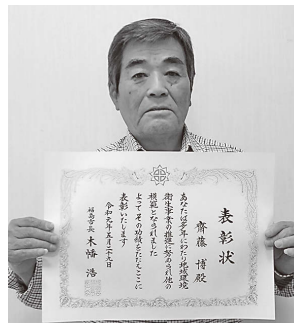 表彰状
齊藤 博 殿
あなたは多年にわたり地域環境
衛生事業の推進に努められ他の
模範となられました
よってその功績をたたえここに
表彰いたします
令和元年五月二十九日
福島市長 木幡 浩